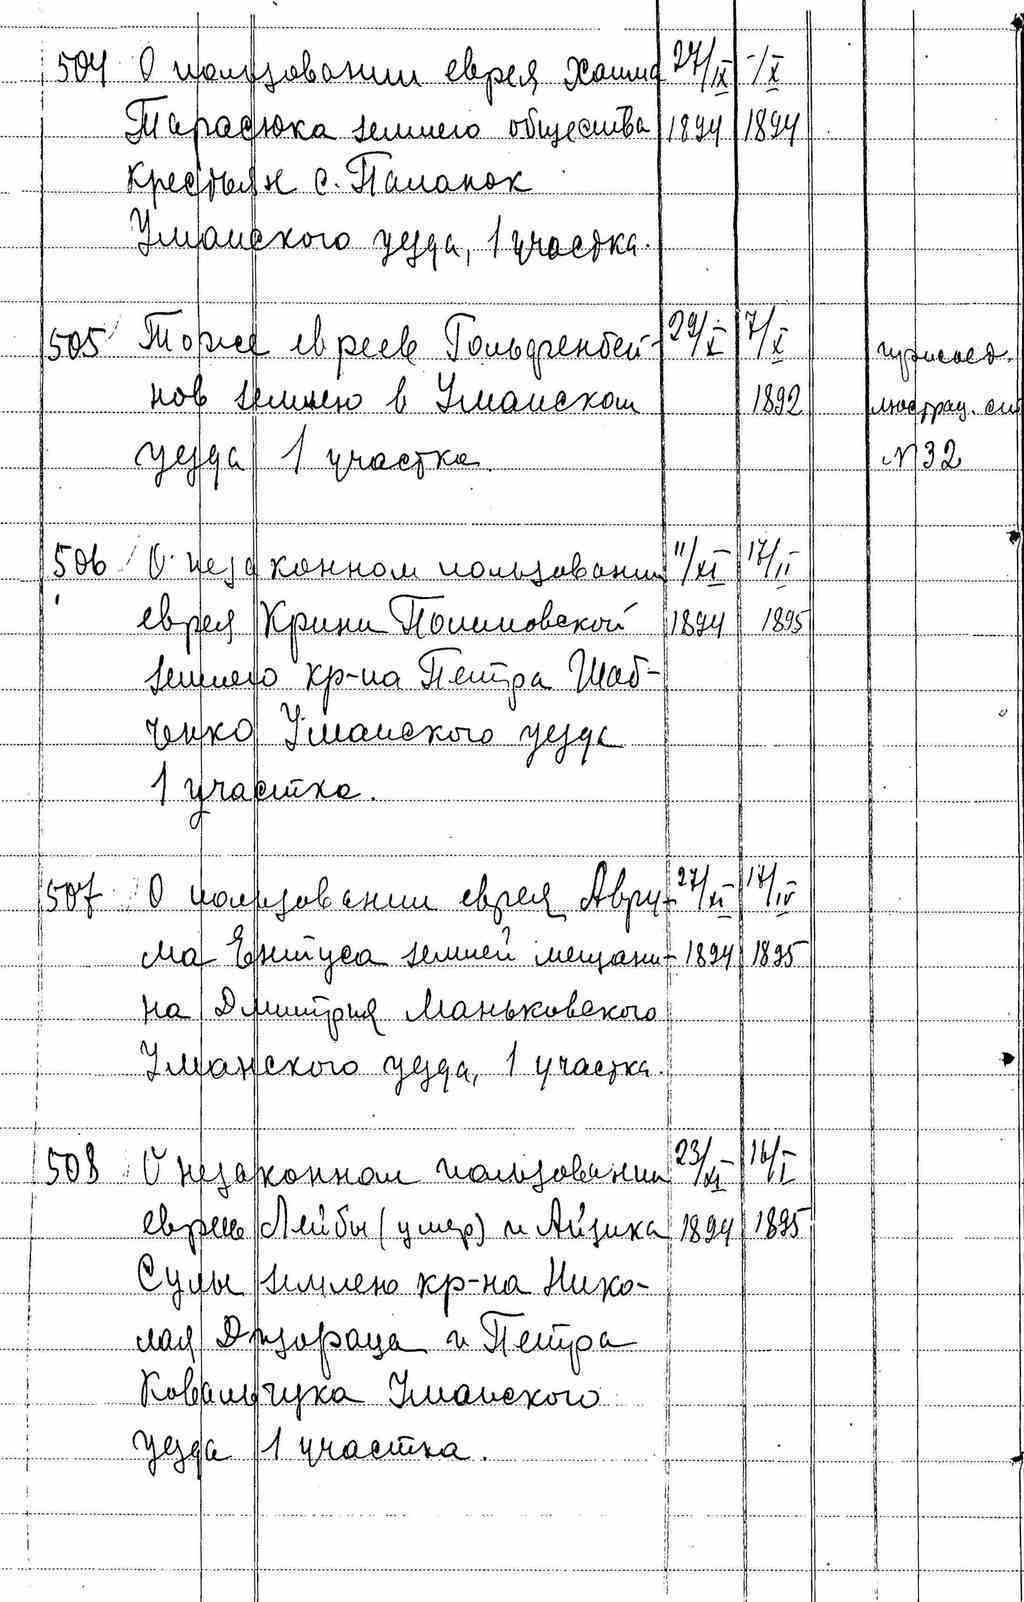 504 О пользовании еврея Хаима 27/IX -/X
Тарасюка землею общества 1894 1894
крестьян с. Паланок
Уманского уезда, 1 участка.
505 Тоже евреев Гольденбей- 29/X 7/X
нов землею в Уманском 1892
уезда 1 участка. №32
506 О незаконном пользовании 11/XI 17/II
еврея Крини 1894 1895
землею кр-на Петра Шаб-
ченко Уманского уезда
1 участка.
507 О пользовании еврея Авру- 27/XI 17/IV
ма Ентуса землей мещани- 1894 1895
на Дмитрия Маньковского
Уманского уезда, 1 участка.
508 О незаконном пользовании 23/XI 16/I
евреев Лейбы (умер) и Айзика 1894 1895
Сулы землею кр-на Нико-
лая и Петра
Ковальчука Уманского
уезда 1 участка.